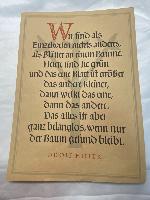 Wir sind als
Einzelwesen nichts anderes,
als Blätter an einem Baume.
Heute sind sie grün
und das eine Blatt ist größer
das andere kleiner,
dann welkt das eine,
dann das andere.
Das alles ist aber
ganz belanglos, wenn nur
der Baum gesund bleibt.
ADOLF HITLER